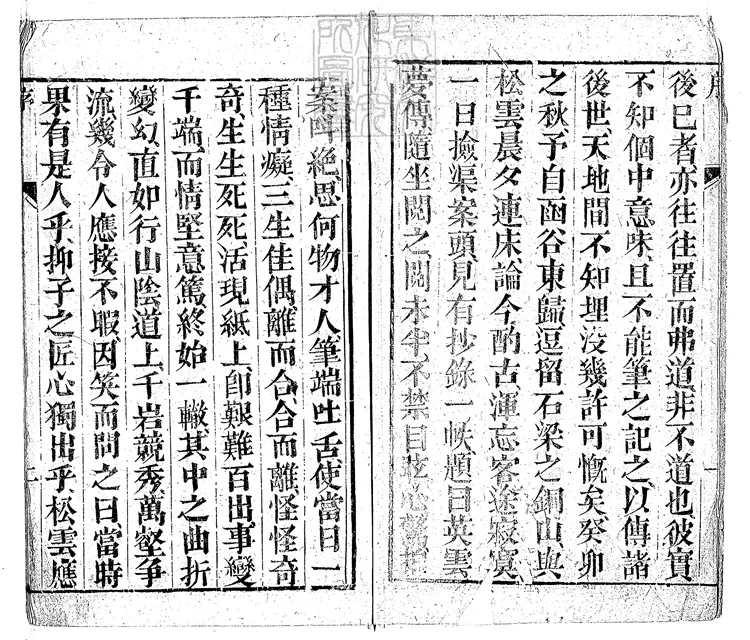 序
後已者亦往往置而弗道非不道也彼實
不知個中意味且不能筆之記之以傳諸
後世天地間不知埋沒幾許可慨矣癸卯
之秋予自函谷東歸逗留石梁之銅山與
松雲晨夕連床論今酌古渾忘客途寂寞
一日撿渠案頭見有抄錄一帙題曰英雲
夢傳隨坐閱之閱未半不禁目眩心驚拍
案呌絕思何物才人筆端吐舌使當日一
種情癡三生佳偶離而合合而離怪怪奇
奇生生死死活現紙上卽艱難百出事變
千端而情堅意篤終始一轍其中之曲折
變幻直如行山陰道上千岩競秀萬壑爭
流幾令人應接不暇因笑而問之曰當時
果有是人乎抑子之匠心獨出乎松雲應
序